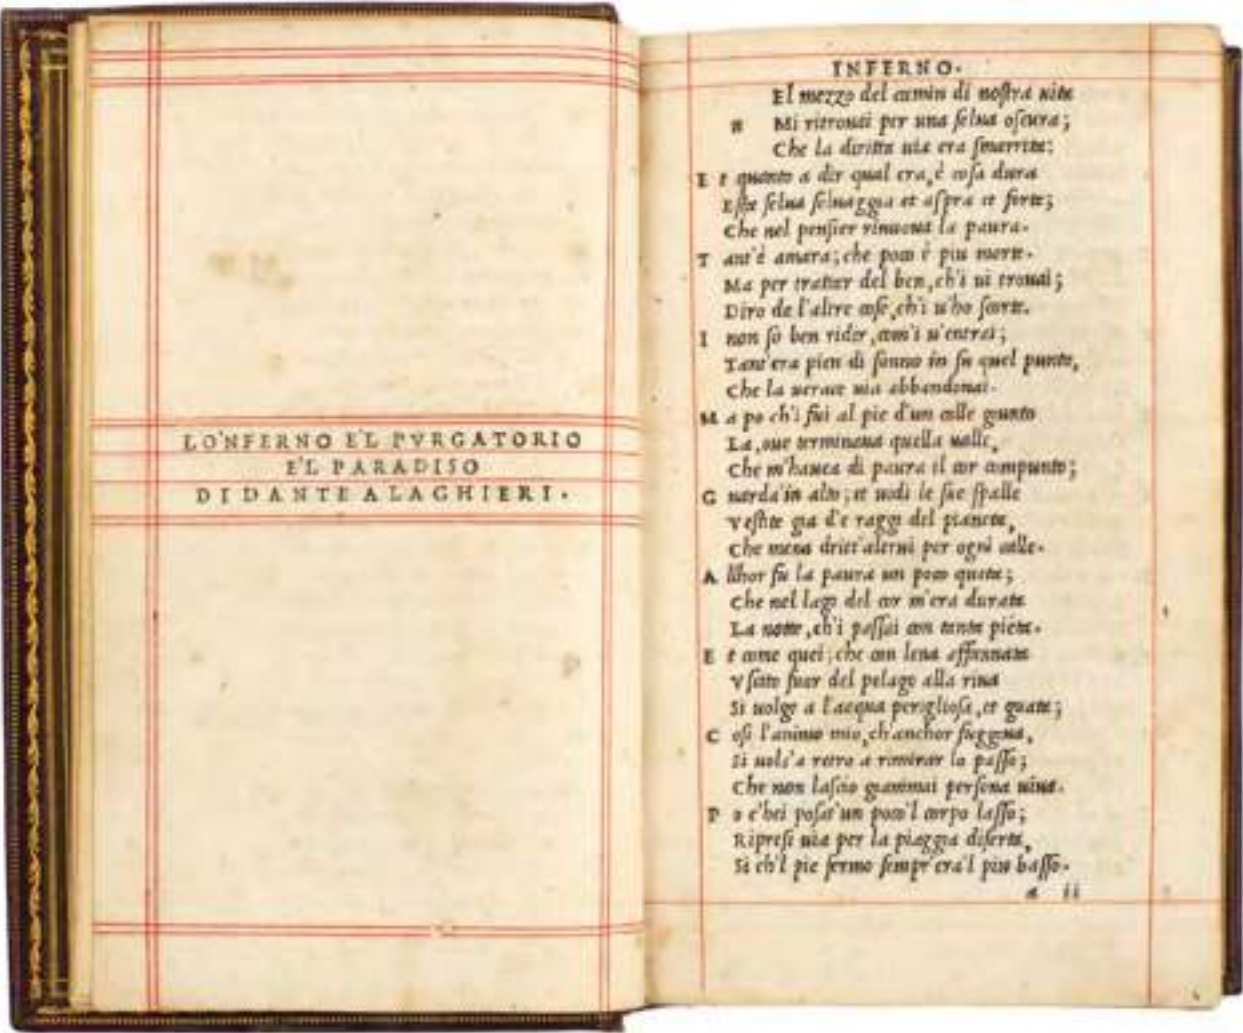 LO'NFERNO E'L PVRGATORIO
E'L PARADISO
DI DANTE ALAGHIERI.
INFERNO.
El mezzo del camin di noſtra uita
n Mi ritrouai per una ſelua oſcura;
Che la diritta uia era ſmarrita:
E t quanto a dir qual era, è coſa dura
Eſta ſelua ſeluaggia et aſpra et forte;
Che nel penſier rinuoua la paura.
T ant'è amara; che poco è piu morte.
Ma per trattar del ben, ch'i ui trouai;
Diro de l'altre coſe, ch'i u'ho ſcorte.
I non ſo ben ridir, com'i u'entrai;
Tant'era pien di ſonno in ſu quel punto,
Che la uerace uia abbandonai.
M a po ch'i fui al pie d'un colle giunto
La, oue terminaua quella ualle,
Che m'hauea di paura il cor compunto;
G uarda'in alto; et uidi le ſue ſpalle
Veſtite gia d'e raggi del pianeta,
Che mena dritt'altrui per ogni calle.
A llhor fu la paura un poco queta;
Che nel lago del cor m'era durata
La notte, ch'i paſſai con tanta pieta.
E t come quei; che con lena affannata
Vſcito fuor del pelago alla riua
Si uolge a l'acqua periglioſa, et guata;
C oſi l'animo mio, ch'anchor fuggiua,
Si uols'a retro a rimirar lo paſſo;
Che non laſcio giammai perſona uiua.
P o c'hei poſat'un poco'l corpo laſſo;
Ripreſi uia per la piaggia diſerta,
Si ch'l pie fermo ſempr'era'l piu baſſo.
a ii